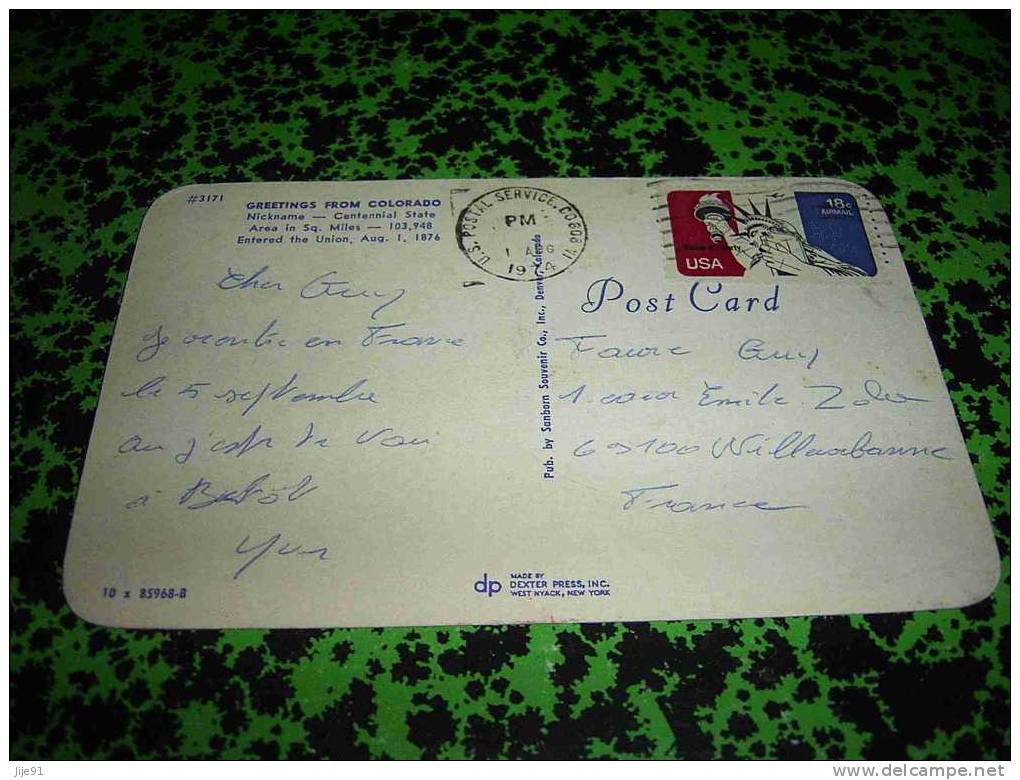 #3171
GREETINGS FROM COLORADO
Nickname — Centennial State
Area in Sq. Miles — 103,948
Entered the Union, Aug. 1, 1876
Cher Guy
Je rentre en France
le 5 septembre
à Bientôt
Yvon
10 x 85968-B
Pub. by Sanborn Souvenir Co., Inc., Denver, Colorado
dp MADE BY
DEXTER PRESS, INC.
WEST NYACK, NEW YORK
U.S. POSTAL SERVICE, CO 808
PM
1 AUG
1974
USA
18c
AIRMAIL
Post Card
Faure Guy
1 cour Emile Zola
69100 Villeurbanne
France
Jije91
www.delcampe.net